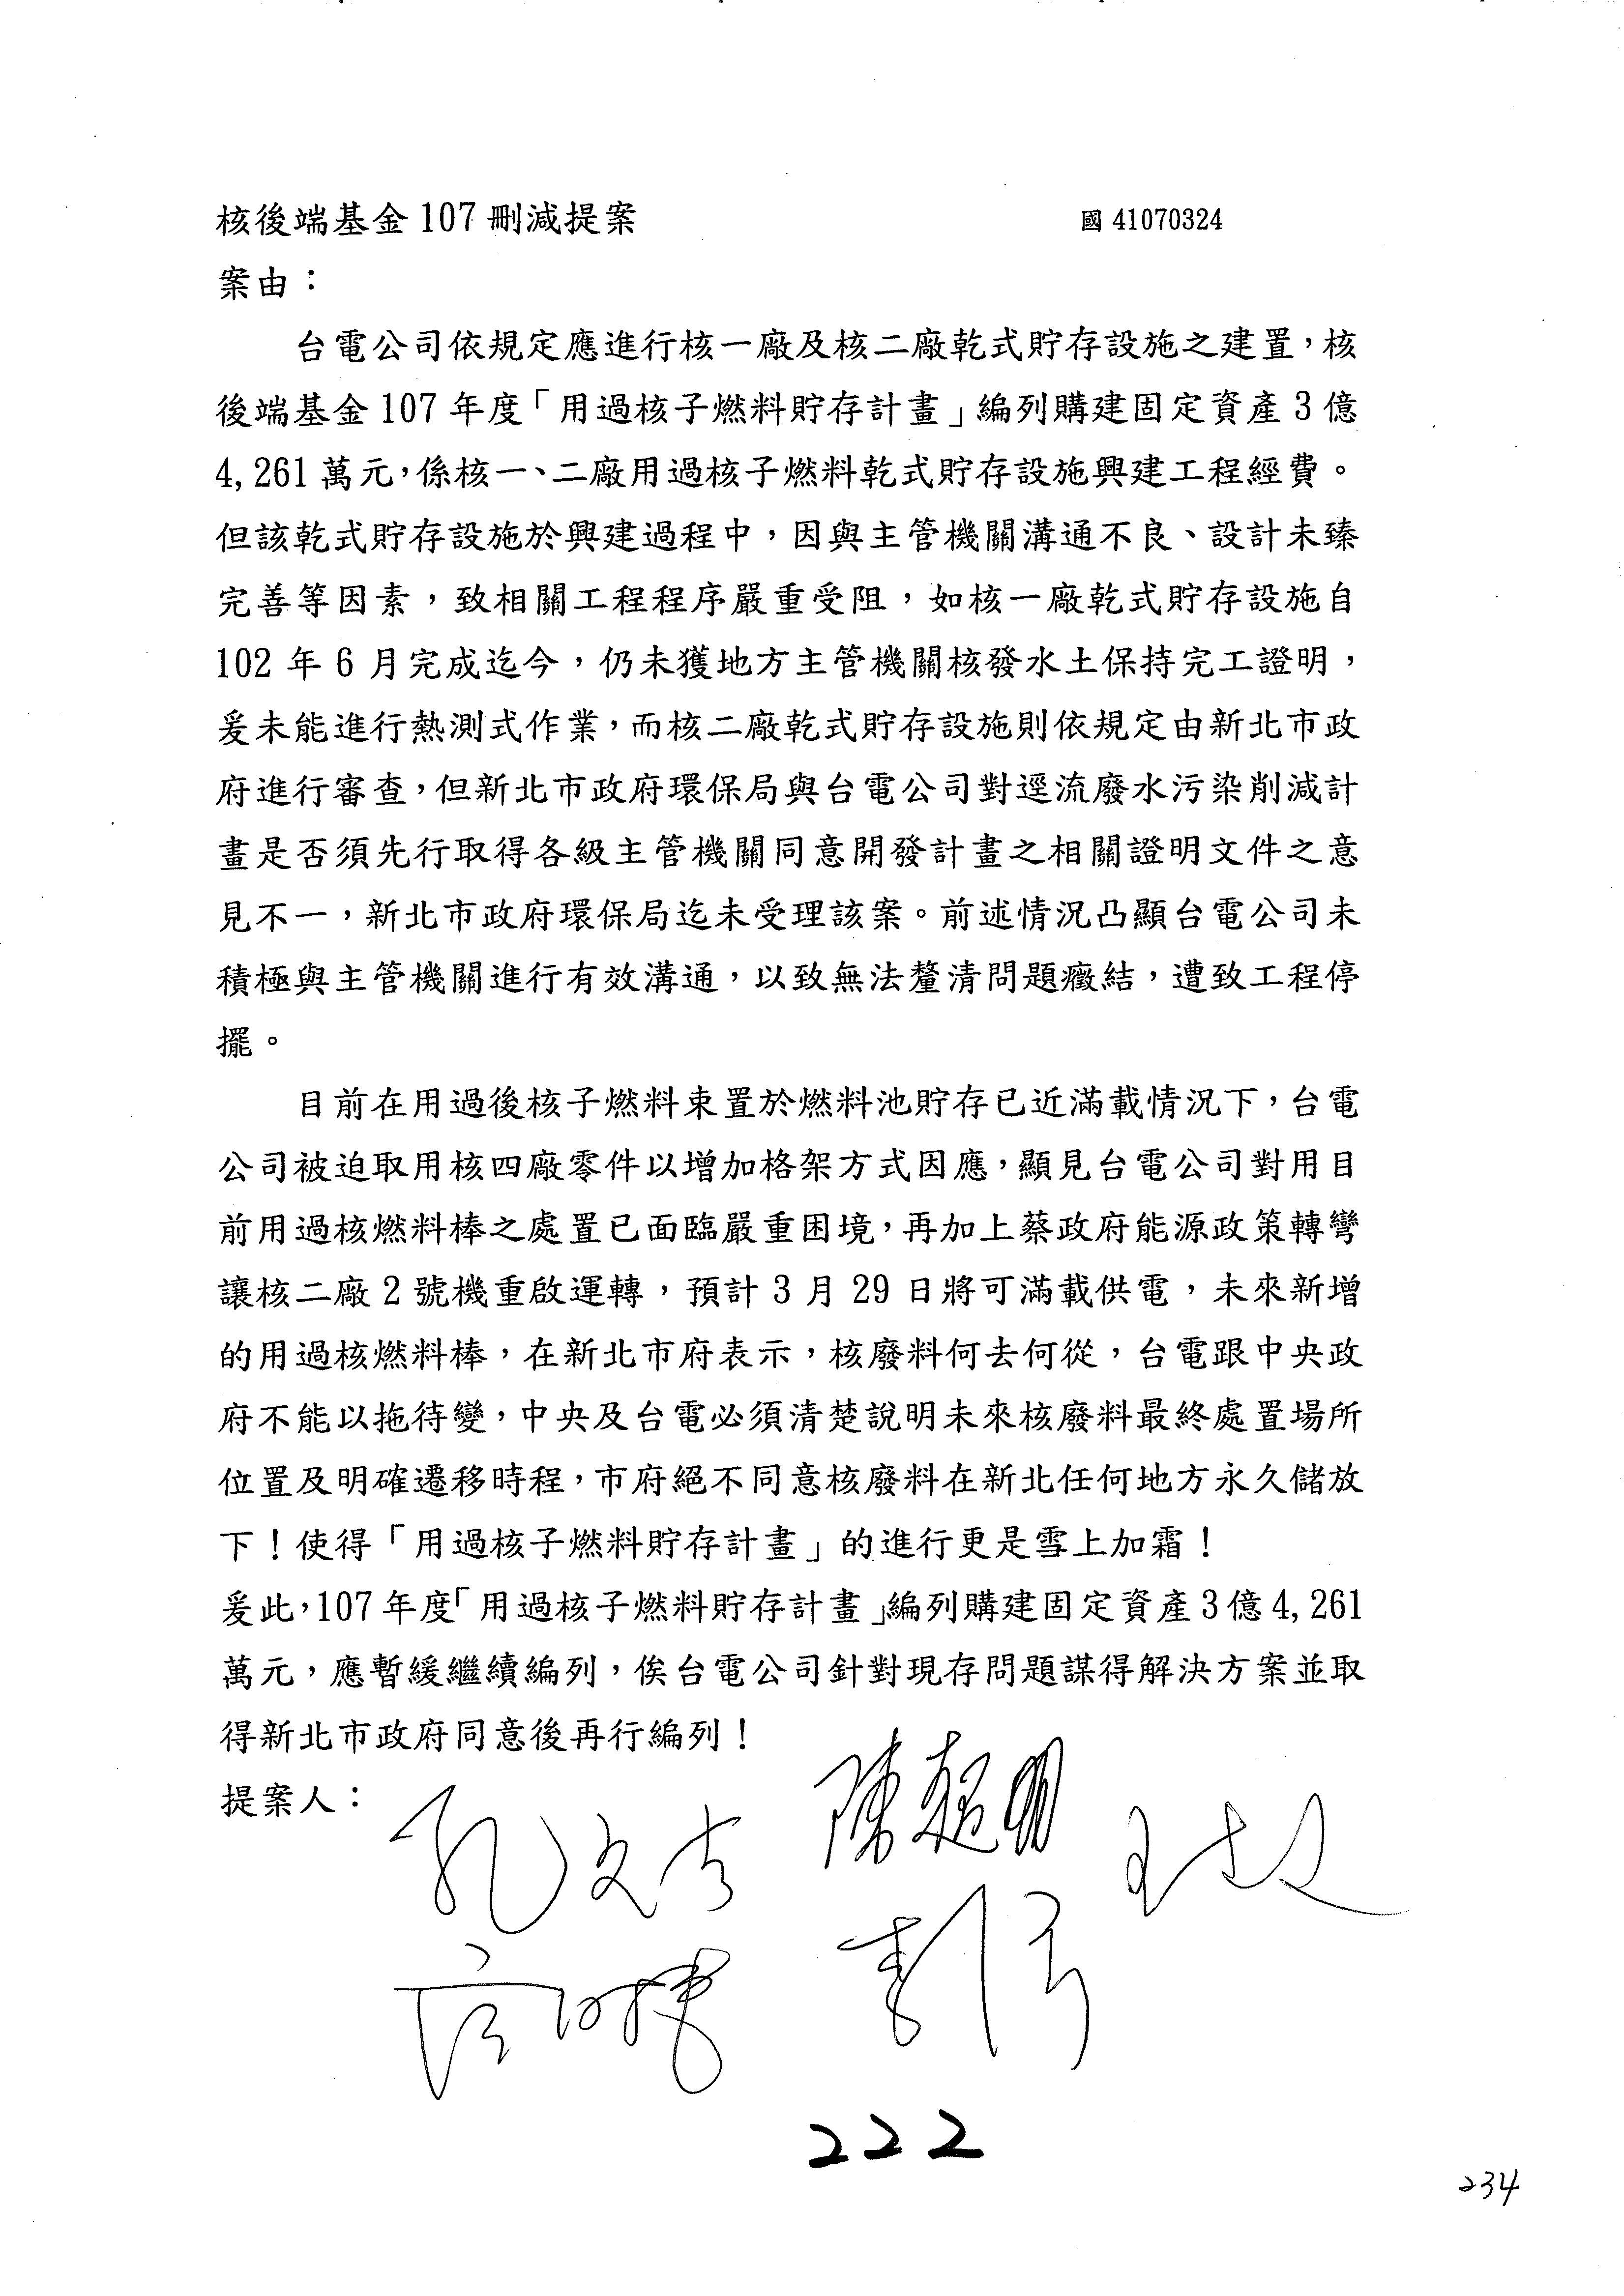 核後端基金 107 刪減提案
國 41070324
案由：
台電公司依規定應進行核一廠及核二廠乾式貯存設施之建置，核
後端基金 107 年度「用過核子燃料貯存計畫」編列購建固定資產 3 億
4,261 萬元，係核一、二廠用過核子燃料乾式貯存設施興建工程經費。
但該乾式貯存設施於興建過程中，因與主管機關溝通不良、設計未臻
完善等因素，致相關工程程序嚴重受阻，如核一廠乾式貯存設施自
102 年 6 月完成迄今，仍未獲地方主管機關核發水土保持完工證明，
爰未能進行熱測式作業，而核二廠乾式貯存設施則依規定由新北市政
府進行審查，但新北市政府環保局與台電公司對逕流廢水污染削減計
畫是否須先行取得各級主管機關同意開發計畫之相關證明文件之意
見不一，新北市政府環保局迄未受理該案。前述情況凸顯台電公司未
積極與主管機關進行有效溝通，以致無法釐清問題癥結，遭致工程停
擺。
目前在用過後核子燃料束置於燃料池貯存已近滿載情況下，台電
公司被迫取用核四廠零件以增加格架方式因應，顯見台電公司對用目
前用過核燃料棒之處置已面臨嚴重困境，再加上蔡政府能源政策轉彎
讓核二廠 2 號機重啟運轉，預計 3 月 29 日將可滿載供電，未來新增
的用過核燃料棒，在新北市府表示，核廢料何去何從，台電跟中央政
府不能以拖待變，中央及台電必須清楚說明未來核廢料最終處置場所
位置及明確遷移時程，市府絕不同意核廢料在新北任何地方永久儲放
下！使得「用過核子燃料貯存計畫」的進行更是雪上加霜！
爰此，107 年度「用過核子燃料貯存計畫」編列購建固定資產 3 億 4,261
萬元，應暫緩繼續編列，俟台電公司針對現存問題謀得解決方案並取
得新北市政府同意後再行編列！
提案人：
孔文吉 陳超明
222
234